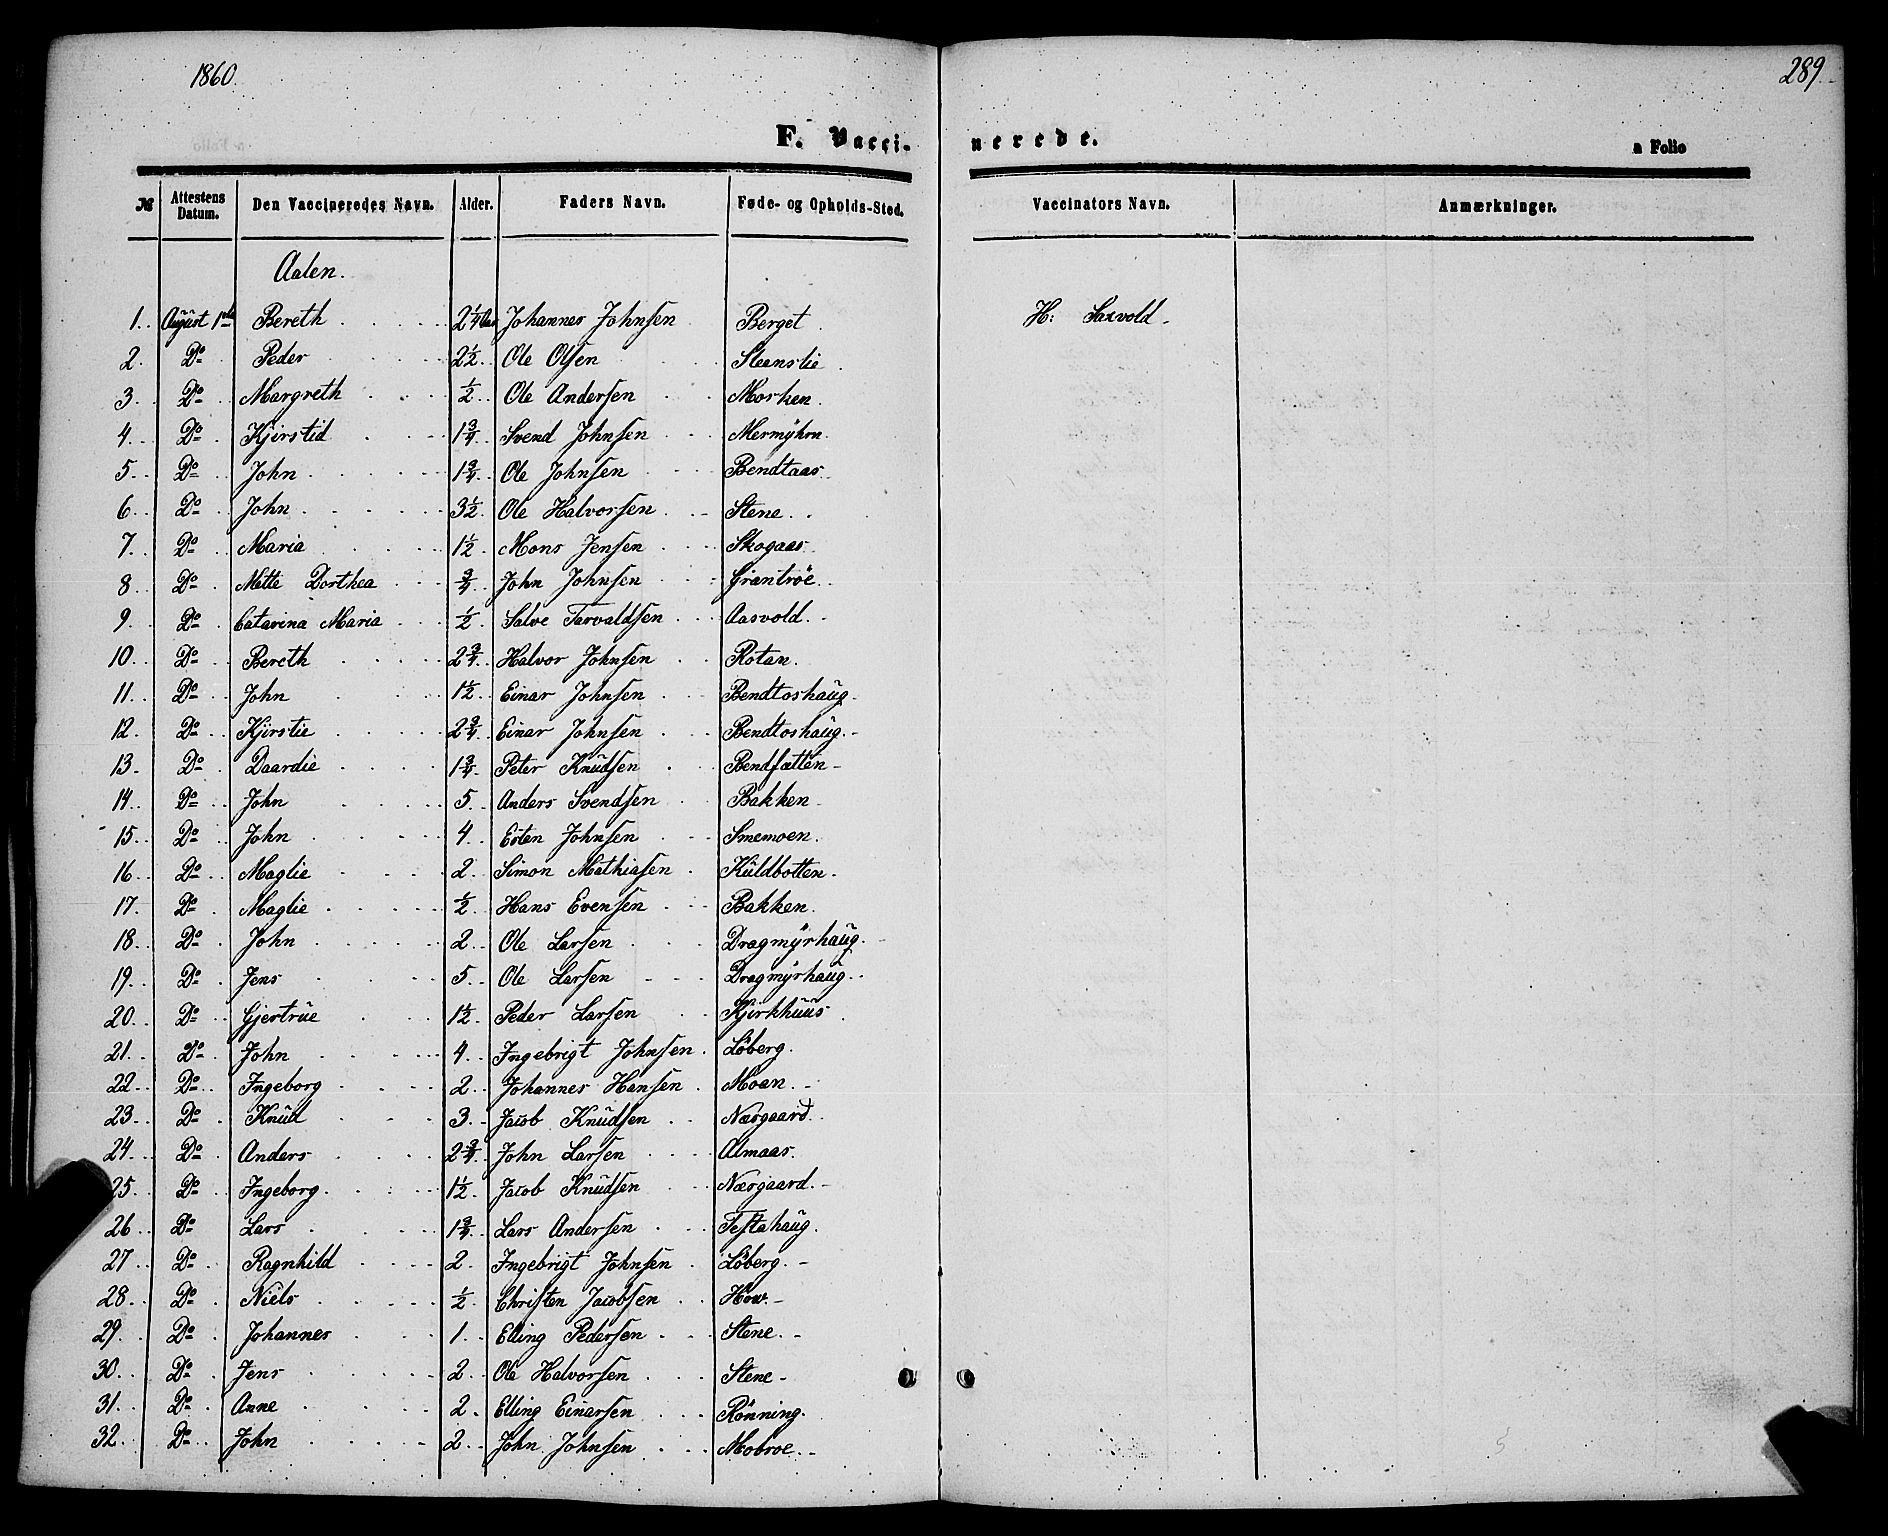 1860.
289.
F. Vacci-nerede.
a Folio
№ Attestens Datum. Den Vaccineredes Navn. Alder. Faders Navn. Føde- og Opholds-Sted. Vaccinators Navn. Anmærkninger.
Aalen.
1. August 1ste Bereth 2 1/4 Aar Johannes Johnsen Berget. H: Saxvold
2. Do Peder 2 1/2 Ole Olsen Steenslie
3. Do Margreth 1/2 Ole Andersen Morken.
4. Do Kjirstid 1 3/4 Svend Johnsen Mermyhrn.
5. Do John 1 3/4 Ole Johnsen Bendtaas
6. Do John 3 1/2 Ole Halvorsen Stene.
7. Do Maria 1 1/2 Mons Jensen Skogaas
8. Do Mette Dorthea 3/4 John Johnsen Grantrøe
9. Do Catarina Maria 1/2 Salve Tarvaldsen Aasvold.
10. Do Bereth 2 3/4 Halvor Johnsen Rotan.
11. Do John 1 1/2 Einar Johnsen Bendtoshaug
12. Do Kjirstie 2 3/4 Einar Johnsen Bendtoshaug.
13. Do Daardie 1 3/4 Peter Knudsen Bendfætten
14. Do John 5 Anders Svendsen Bakken
15. Do John 4 Esten Johnsen Smemoen.
16. Do Maglie 2 Simon Mathiasen Kuldbotten.
17. Do Maglie 1/2 Hans Evensen Bakken.
18. Do John 2 Ole Larsen Dragmyrhaug.
19. Do Jens 5 Ole Larsen Dragmyrhaug.
20. Do Gjertrue 1 1/2 Peder Larsen Kjirkhuus
21. Do John 4 Ingebrigt Johnsen Løberg.
22. Do Ingeborg 2 Johannes Hansen Moan.
23. Do Knud 3 Jacob Knudsen Nærgaard.
24. Do Anders 2 3/4 John Larsen Almaas.
25. Do Ingeborg 1 1/2 Jacob Knudsen Nærgaard.
26. Do Lars 1 3/4 Lars Andersen Testahaug.
27. Do Ragnhild 2 Ingebrigt Johnsen Løberg.
28. Do Niels 1/2 Christen Jacobsen How.
29. Do Johannes 1 Elling Pedersen Stene.
30. Do Jens 2 Ole Halvorsen Stene
31. Do Anne 2 Elling Einarsen Rønning.
32. Do John 2 John Johnsen Mobroe.